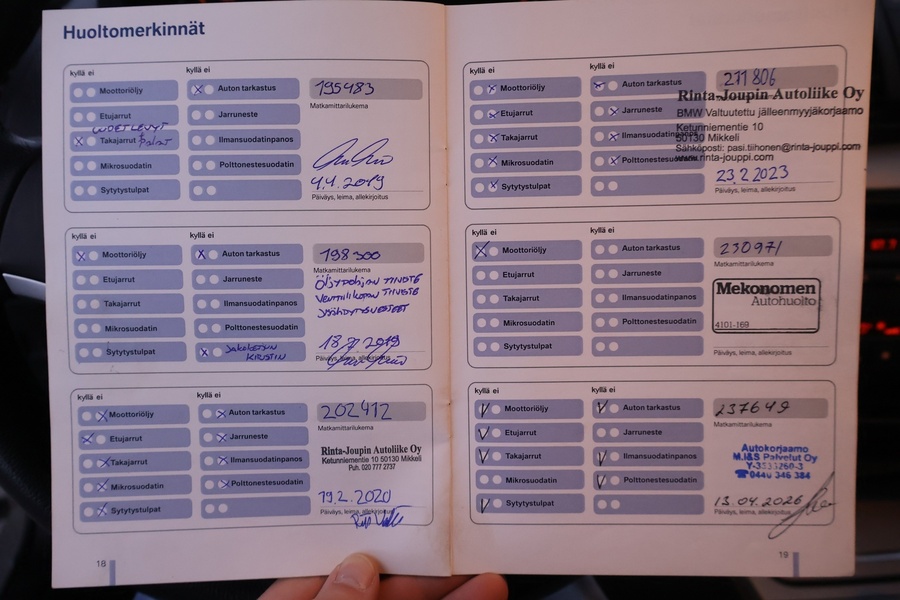 Huoltomerkinnät
kyllä ei
kyllä ei
Moottoriöljy
Auton tarkastus
195483
Matkamittarilukema
Etujarrut
Jarruneste
Takajarrut
Ilmansuodatinpanos
Mikrosuodatin
Polttonestesuodatin
Sytytystulpat
4.4.2019
Päiväys, leima, allekirjoitus
kyllä ei
kyllä ei
Moottoriöljy
Auton tarkastus
198300
Matkamittarilukema
Etujarrut
Jarruneste
Öljypohjan tiiviste
Takajarrut
Ilmansuodatinpanos
Venttiilikopan tiiviste
Mikrosuodatin
Polttonestesuodatin
Jäähdytysnesteet
Sytytystulpat
Jakoketjun
kiristin
Päiväys, leima, allekirjoitus
kyllä ei
kyllä ei
Moottoriöljy
Auton tarkastus
202412
Matkamittarilukema
Etujarrut
Jarruneste
Takajarrut
Ilmansuodatinpanos
Rinta-Joupin Autoliike Oy
Ketunniementie 10 50130 Mikkeli
Puh. 020 777 2737
Mikrosuodatin
Polttonestesuodatin
Sytytystulpat
19.2.2020
Päiväys, leima, allekirjoitus
18
kyllä ei
kyllä ei
Moottoriöljy
Auton tarkastus
211806
Rinta-Joupin Autoliike Oy
BMW Valtuutettu jälleenmyyjäkorjaamo
Etujarrut
Jarruneste
Ketunniementie 10
50130 Mikkeli
Takajarrut
Ilmansuodatinpanos
Sähköposti: pasi.tiihonen@rinta-jouppi.com
www.rinta-jouppi.com
Mikrosuodatin
Polttonestesuodatin
Sytytystulpat
23.2.2023
Päiväys, leima, allekirjoitus
kyllä ei
kyllä ei
Moottoriöljy
Auton tarkastus
230971
Matkamittarilukema
Etujarrut
Jarruneste
Takajarrut
Ilmansuodatinpanos
Mekonomen
Autohuolto
4101-169
Mikrosuodatin
Polttonestesuodatin
Sytytystulpat
Päiväys, leima, allekirjoitus
kyllä ei
kyllä ei
Moottoriöljy
Auton tarkastus
237649
Matkamittarilukema
Etujarrut
Jarruneste
Takajarrut
Ilmansuodatinpanos
Autokorjaamo
M.I&S Palvelut Oy
☎0440 346 384
Mikrosuodatin
Polttonestesuodatin
Sytytystulpat
13.04.2026
Päiväys, leima, allekirjoitus
19